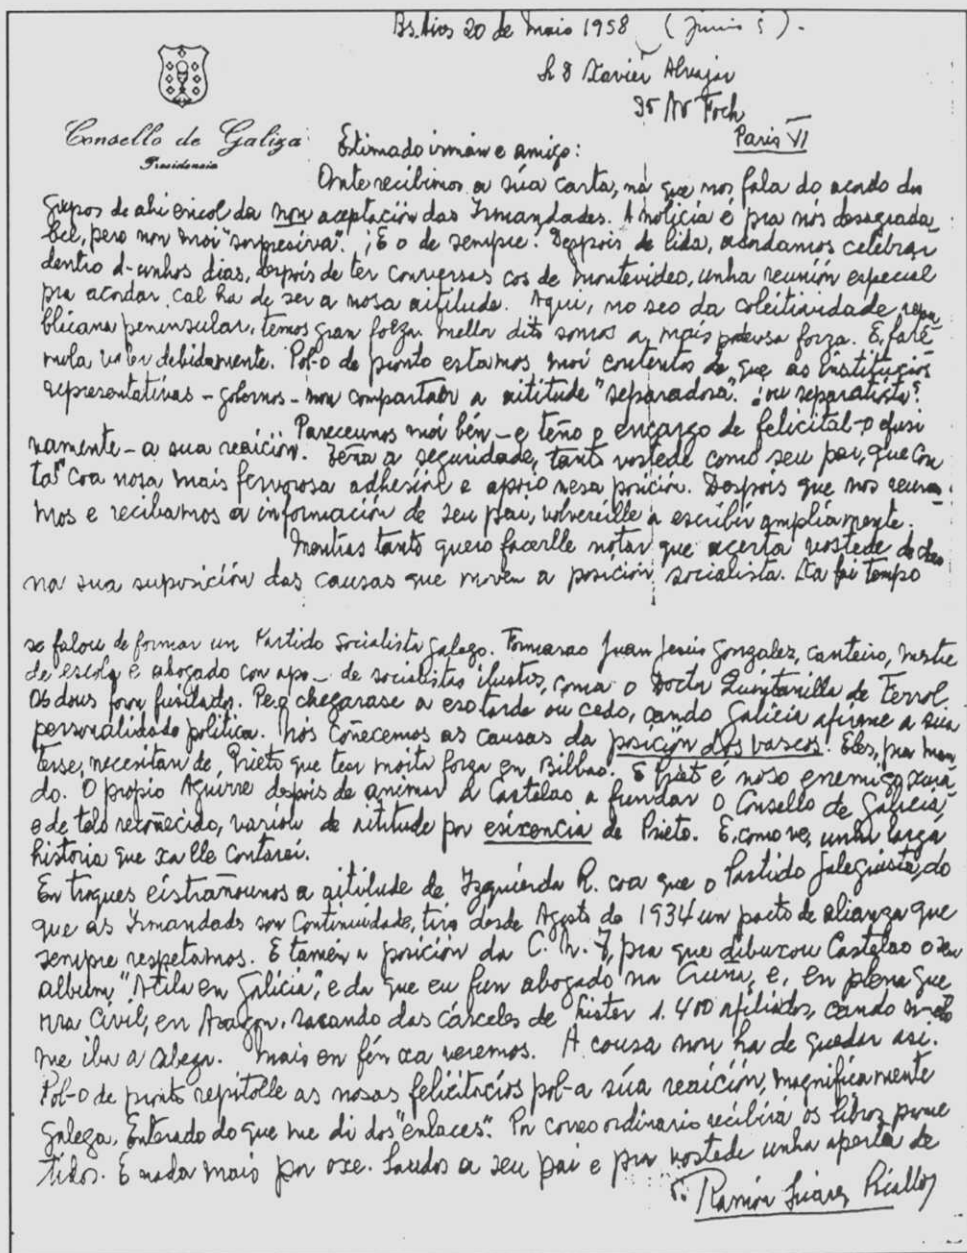 Bs. Aires 20 de Maio 1958 (Junio 5).
Sr D Xavier Alvajar
35 Av Foch
Paris VI
Consello de Galiza
Presidencia
Estimado irmán e amigo:
Onte recibimos a súa carta, na que nos fala do acordo dos
grupos de ahi encol da non aceptación das Irmandades. A noticia é pra nós desagrada
bel, pero non moi "sorpresiva". ¡E o de sempre! Despois de lida, acordamos celebrar
dentro d-unhos dias, depois de ter conversas cos de Montevideo, unha reunión especial
pra acordar cal ha de ser a nosa aititude. Aqui, no seo da coleitividade repu
blicana peninsular, temos gran forza. Mellor dito somos a mais poderosa forza. E, faré
mola valer debidamente. Pol-o de pronto estamos moi contentos de que as institucións
representativas - gobernos - non compartan a aititude "separadora". ¿ou separatista?
Pareceunos moi bén - e teño o encargo de felicital-o efusi
vamente - a sua reaición. Teña a seguridade, tanto vostede como seu pai, que con
ta coa nosa mais fervorosa adhesión e apoio nesa posición. Despois que nos reuna
mos e recibamos a información de seu pai, volvereille a escribir ampliamente.
Mentras tanto quero facerlle notar que acerta vostede de cheo
na sua suposición das causas que moven a posición socialista. Xa fai tempo
se falou de formar un Partido Socialista galego. Formarao Juan Jesús González, canteiro, mestre
de escola e abogado con apo- de socialistas ilustres, coma o Doctor Quintanilla de Ferrol.
Os dous foron fusilados. Pero chegarase a eso tarde ou cedo, cando Galicia afirme a sua
personalidade política. Nós coñecemos as causas da posición dos vascos. Eles, pra man
terse, necesitan de Prieto que ten moita forza en Bilbao. E Prieto é noso enemigo xura
do. O propio Aguirre depois de animar a Castelao a fundar o Consello de Galicia
e de telo recoñecido, variou de aititude por esixencia de Prieto. E, como ve, unha larga
historia que xa lle contarei.
En troques eistrañounos a aititude de Izquierda R. coa que o Partido Galeguista, do
que as Irmandades son continuidade, tiña desde Agosto de 1934 un pacto de alianza que
sempre respetamos. E tamén a posición da C.N.T, pra que dibuxou Castelao o seu
album "Atila en Galicia", e da que eu fun abogado na Cruña, e, en plena gue
rra Civil, en Aragón, sacando das cárceles de Lister 1.400 afiliados, cando
me iba a alegar. Mais en fén xa veremos. A cousa non ha de quedar asi.
Pol-o de pronto repitolle as nosas felicitacións pol-a súa reaición, magnificamente
galega. Enterado do que me di dos "enlaces". Por correo ordinario recibirá os libros prome
tidos. E nada mais por oxe. Saudos a seu pai e pra vostede unha aperta de
Ramón Suárez Picallo